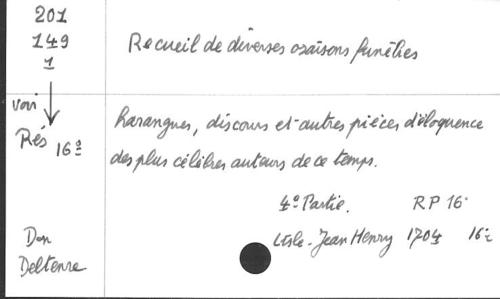 201
149
1
Recueil de diverses oraisons funèbres
voir
Rés 16º
harangues, discours et autres pièces d'éloquence
des plus célèbres auteurs de ce temps.
4º Partie. RP 16
Lisle. Jean Henry 1704 16º
Don
Deltenre